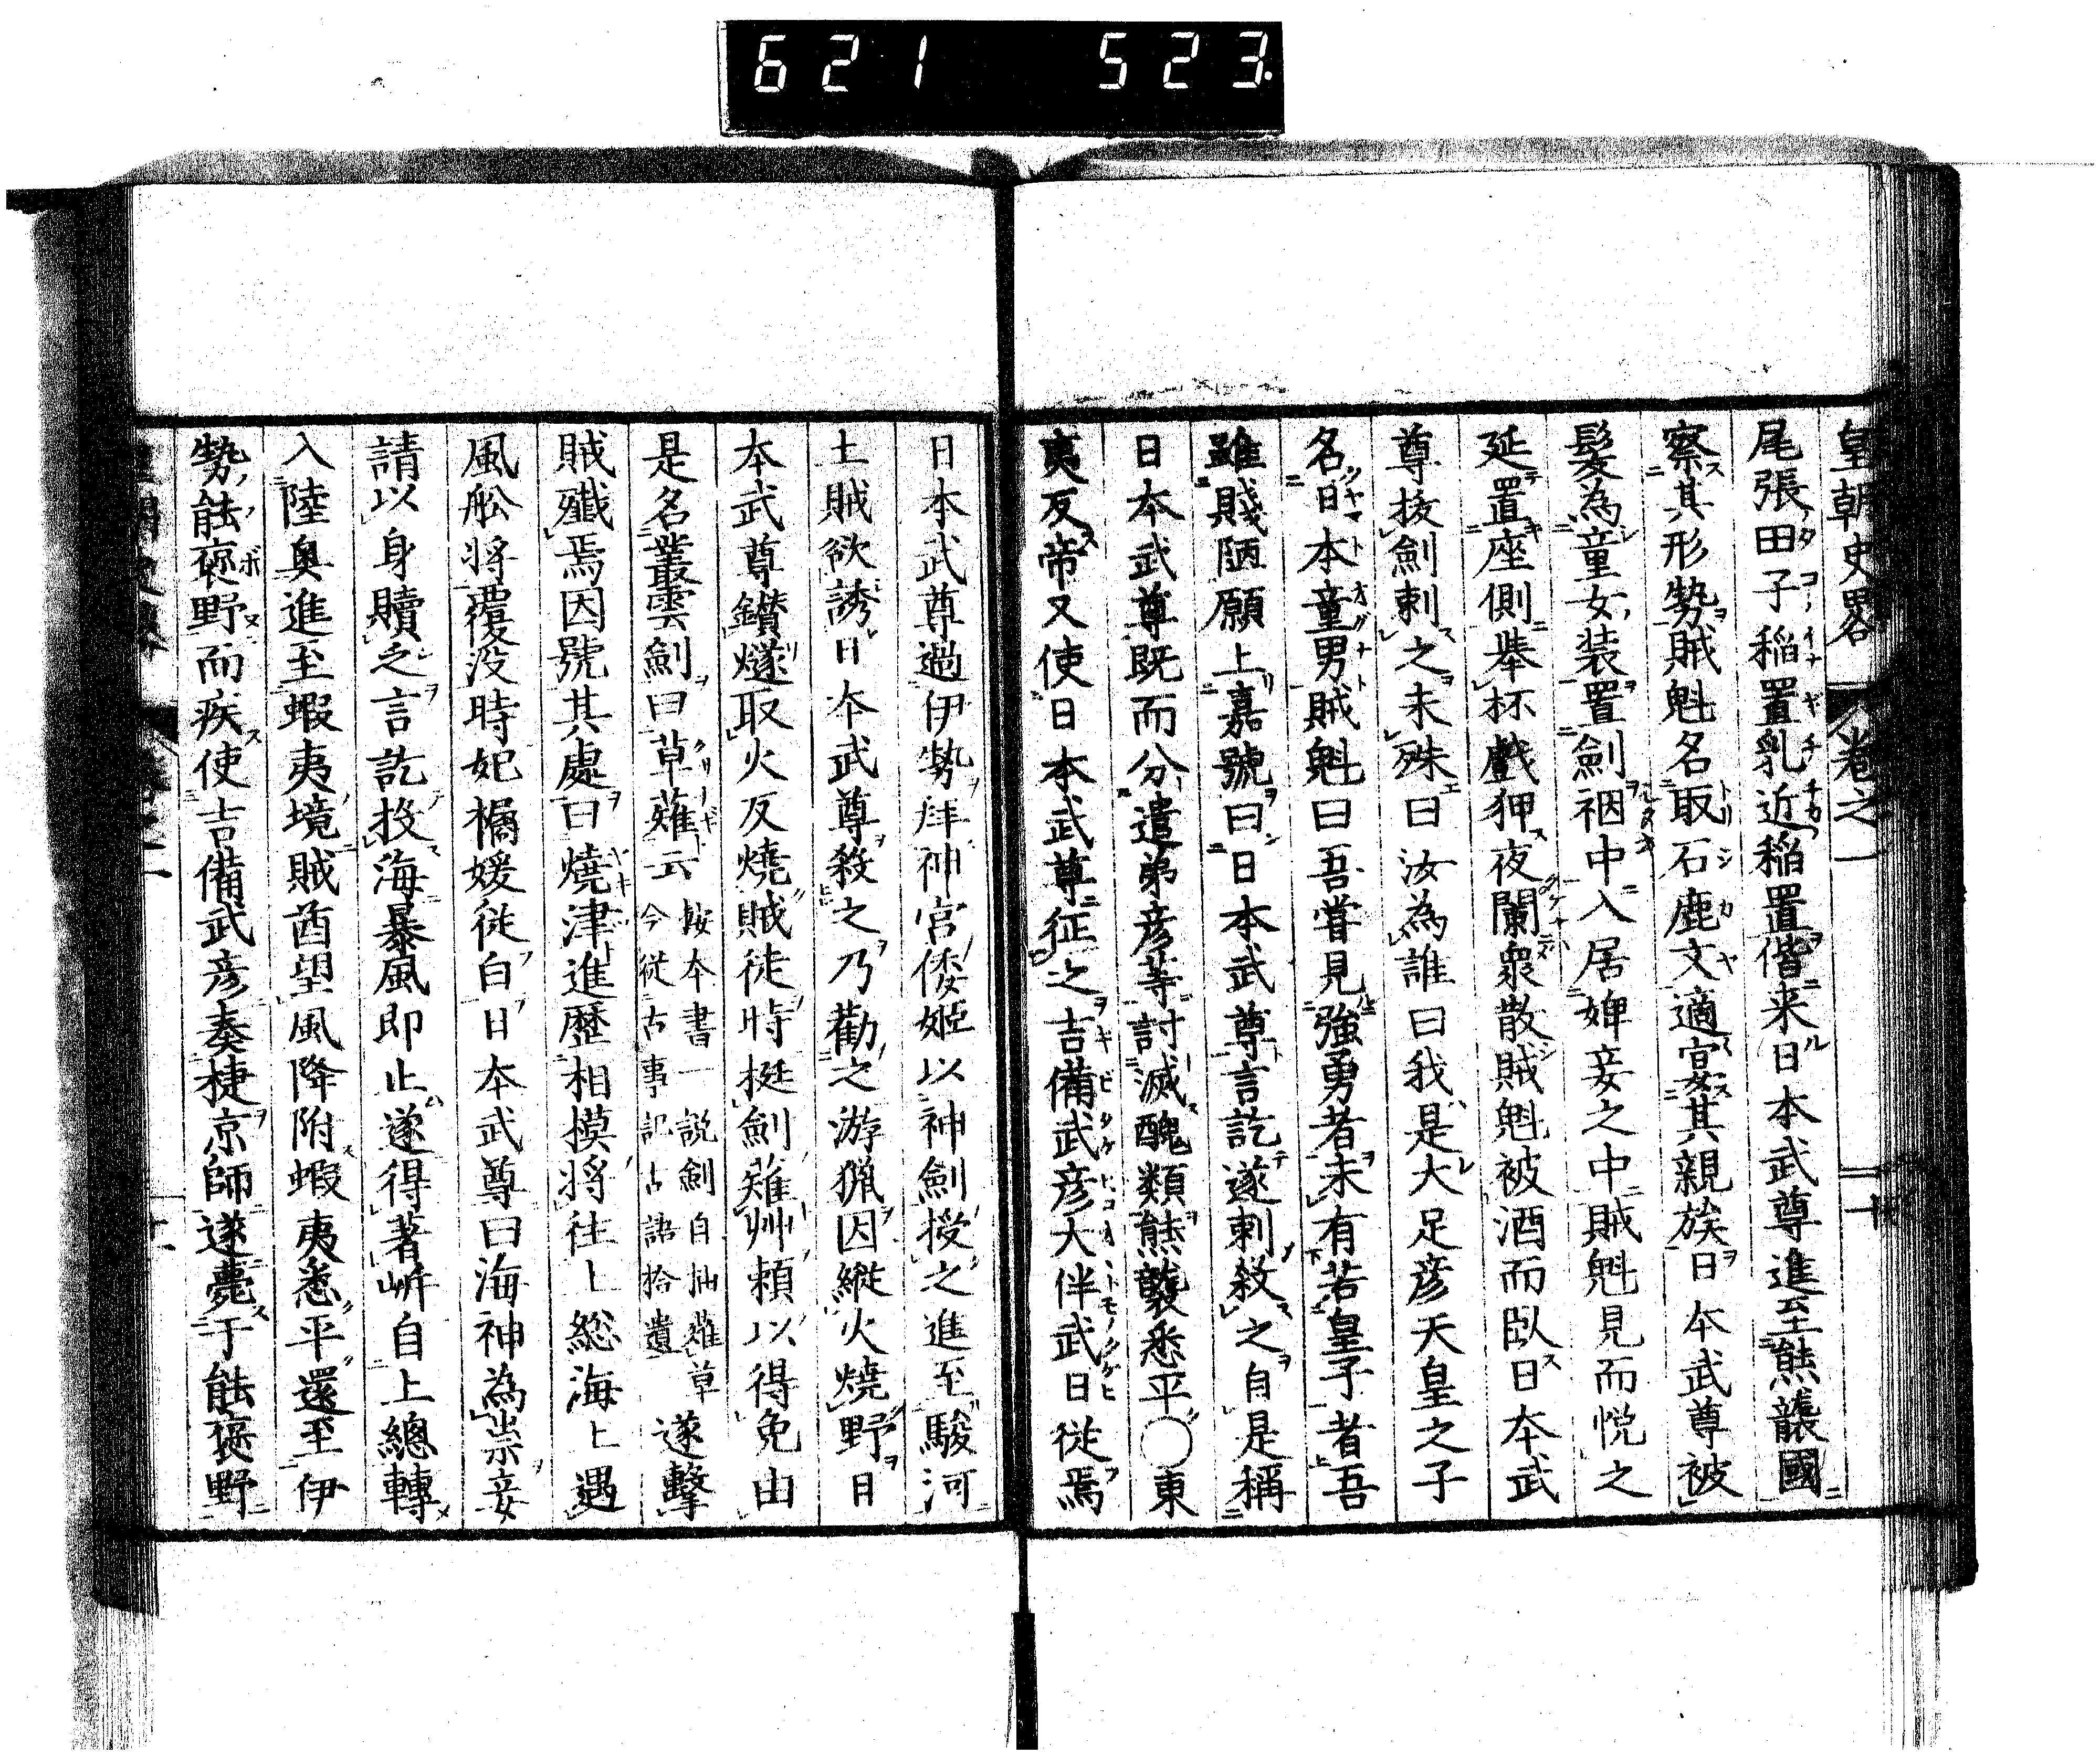 621 523
皇朝史畧 卷之一 十一
尾張田子稲置乳近稲置偕来日本武尊進至熊襲國
察其形勢賊魁名取石鹿文適宴其親族日本武尊被
髮為童女装置劍裀中入居婢妾之中賊魁見而悦之
延置座側擧杯戲狎夜闌衆散賊魁被酒而臥日本武
尊拔劍刺之未殊曰汝為誰曰我是大足彦天皇之子
名日本童男賊魁曰吾嘗見強勇者未有若皇子者吾
雖賤陋願上嘉號曰日本武尊言訖遂刺殺之自是稱
日本武尊既而分遣弟彦等討滅醜類熊襲悉平○東
夷反帝又使日本武尊征之吉備武彦大伴武日従焉
日本武尊過伊勢拜神宮倭姫以神劍授之進至駿河
土賊欲誘日本武尊殺之乃勸之游猟因縱火燒野日
本武尊鑚燧取火反燒賊徒時挺劍薙艸頼以得免由
是名叢雲劍曰草薙云按本書一説劍自抽薙草今從古事記古語拾遺遂擊
賊殲焉因號其處曰燒津進歷相摸將往上総海上遇
風舩将覆没時妃橘媛従白日本武尊曰海神為祟妾
請以身贖之言訖投海暴風即止遂得著岍自上總轉
入陸奥進至蝦夷境賊酋望風降附蝦夷悉平還至伊
勢能褒野而疾使吉備武彦奏捷京師遂薨于能褒野